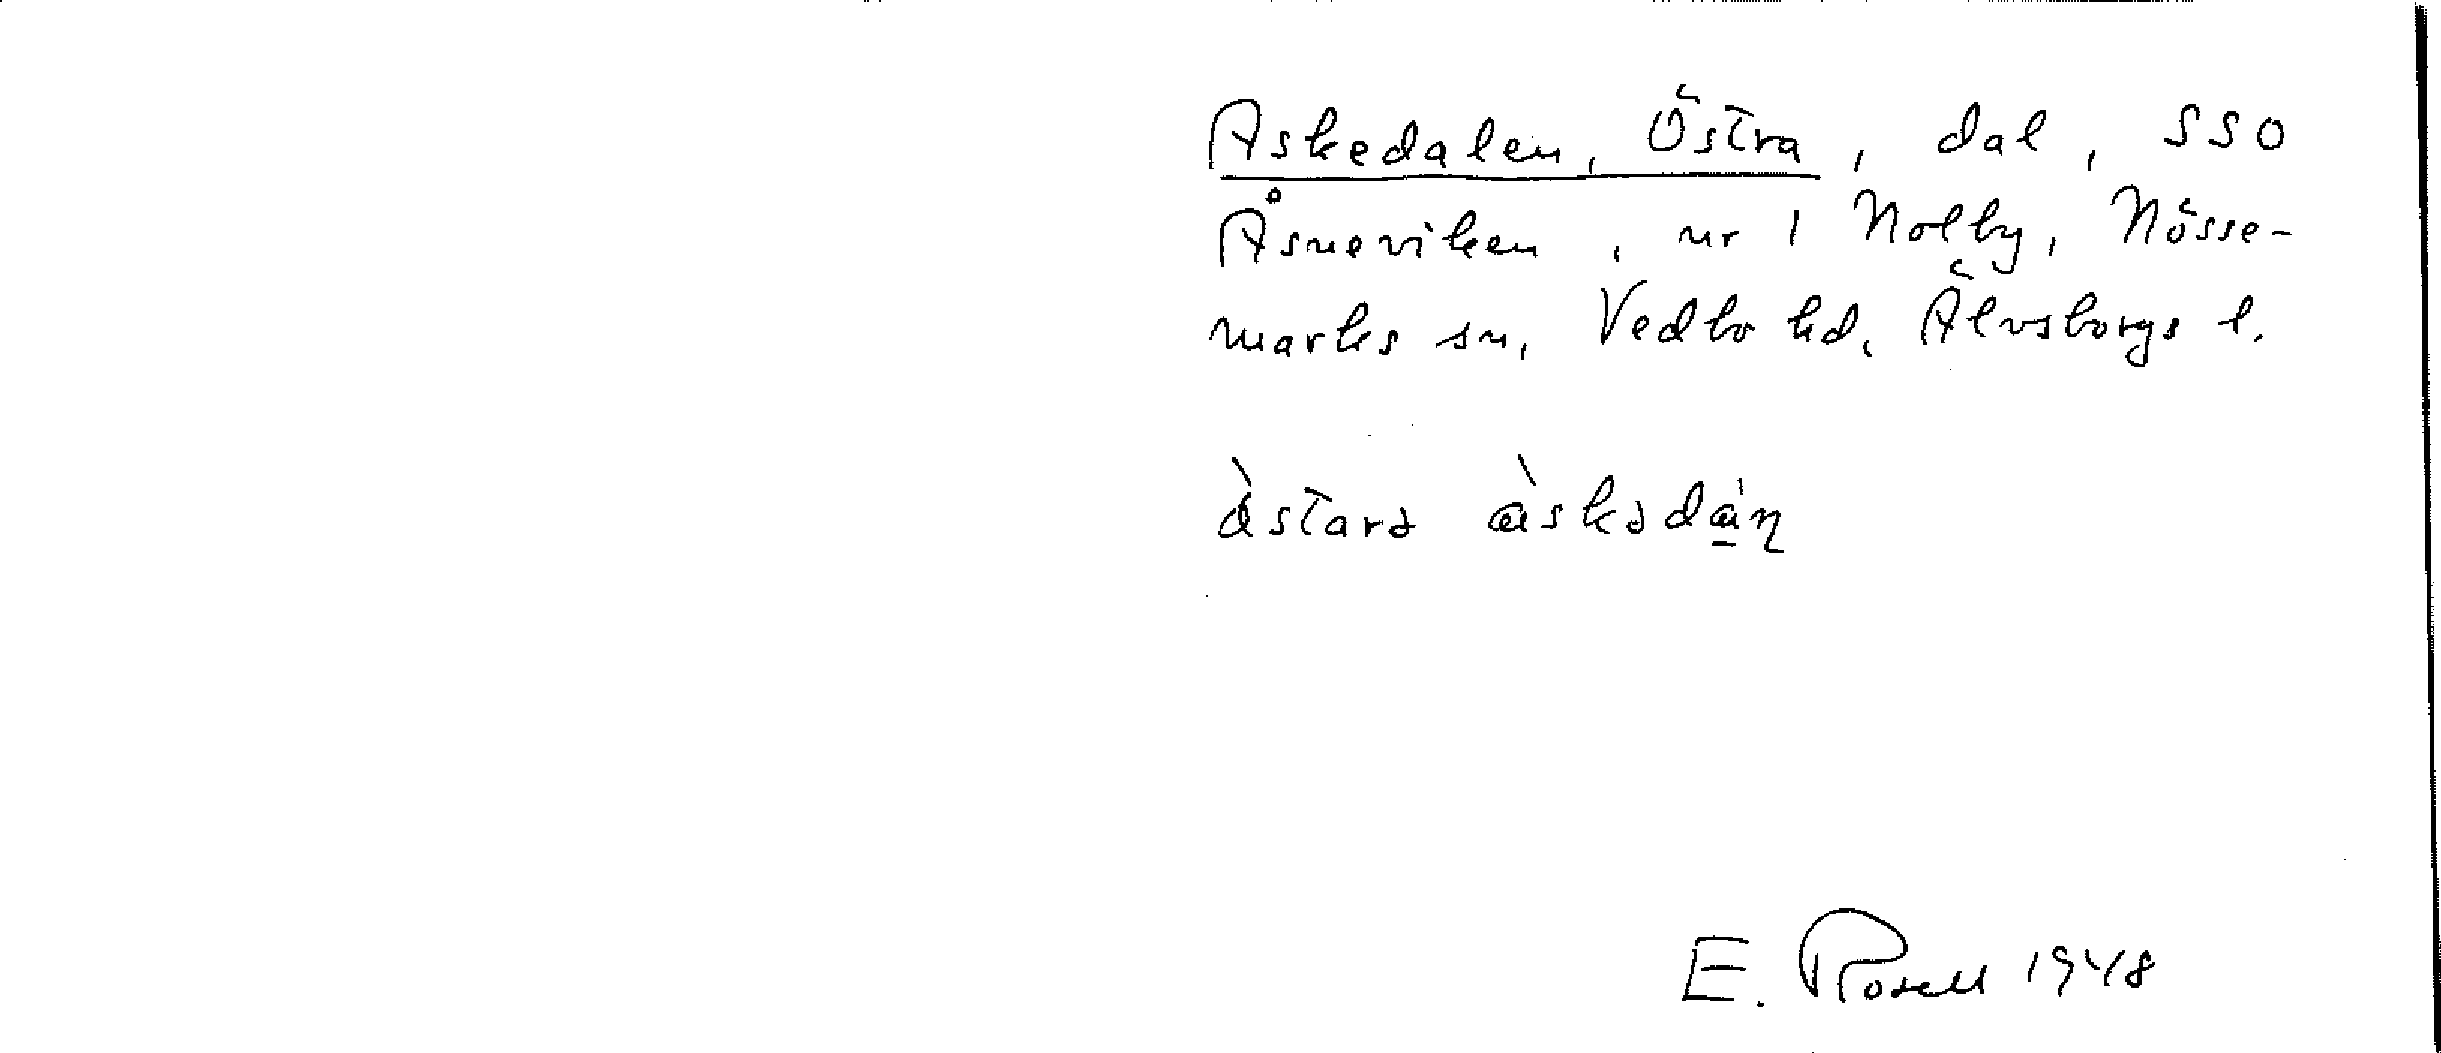 Askedalen, Östra, dal, SSO
Åsneviken, nr 1 Nolby, Nösse-
marks sn, Vedbo hd, Älvsborgs l.
E. Rosell 1948